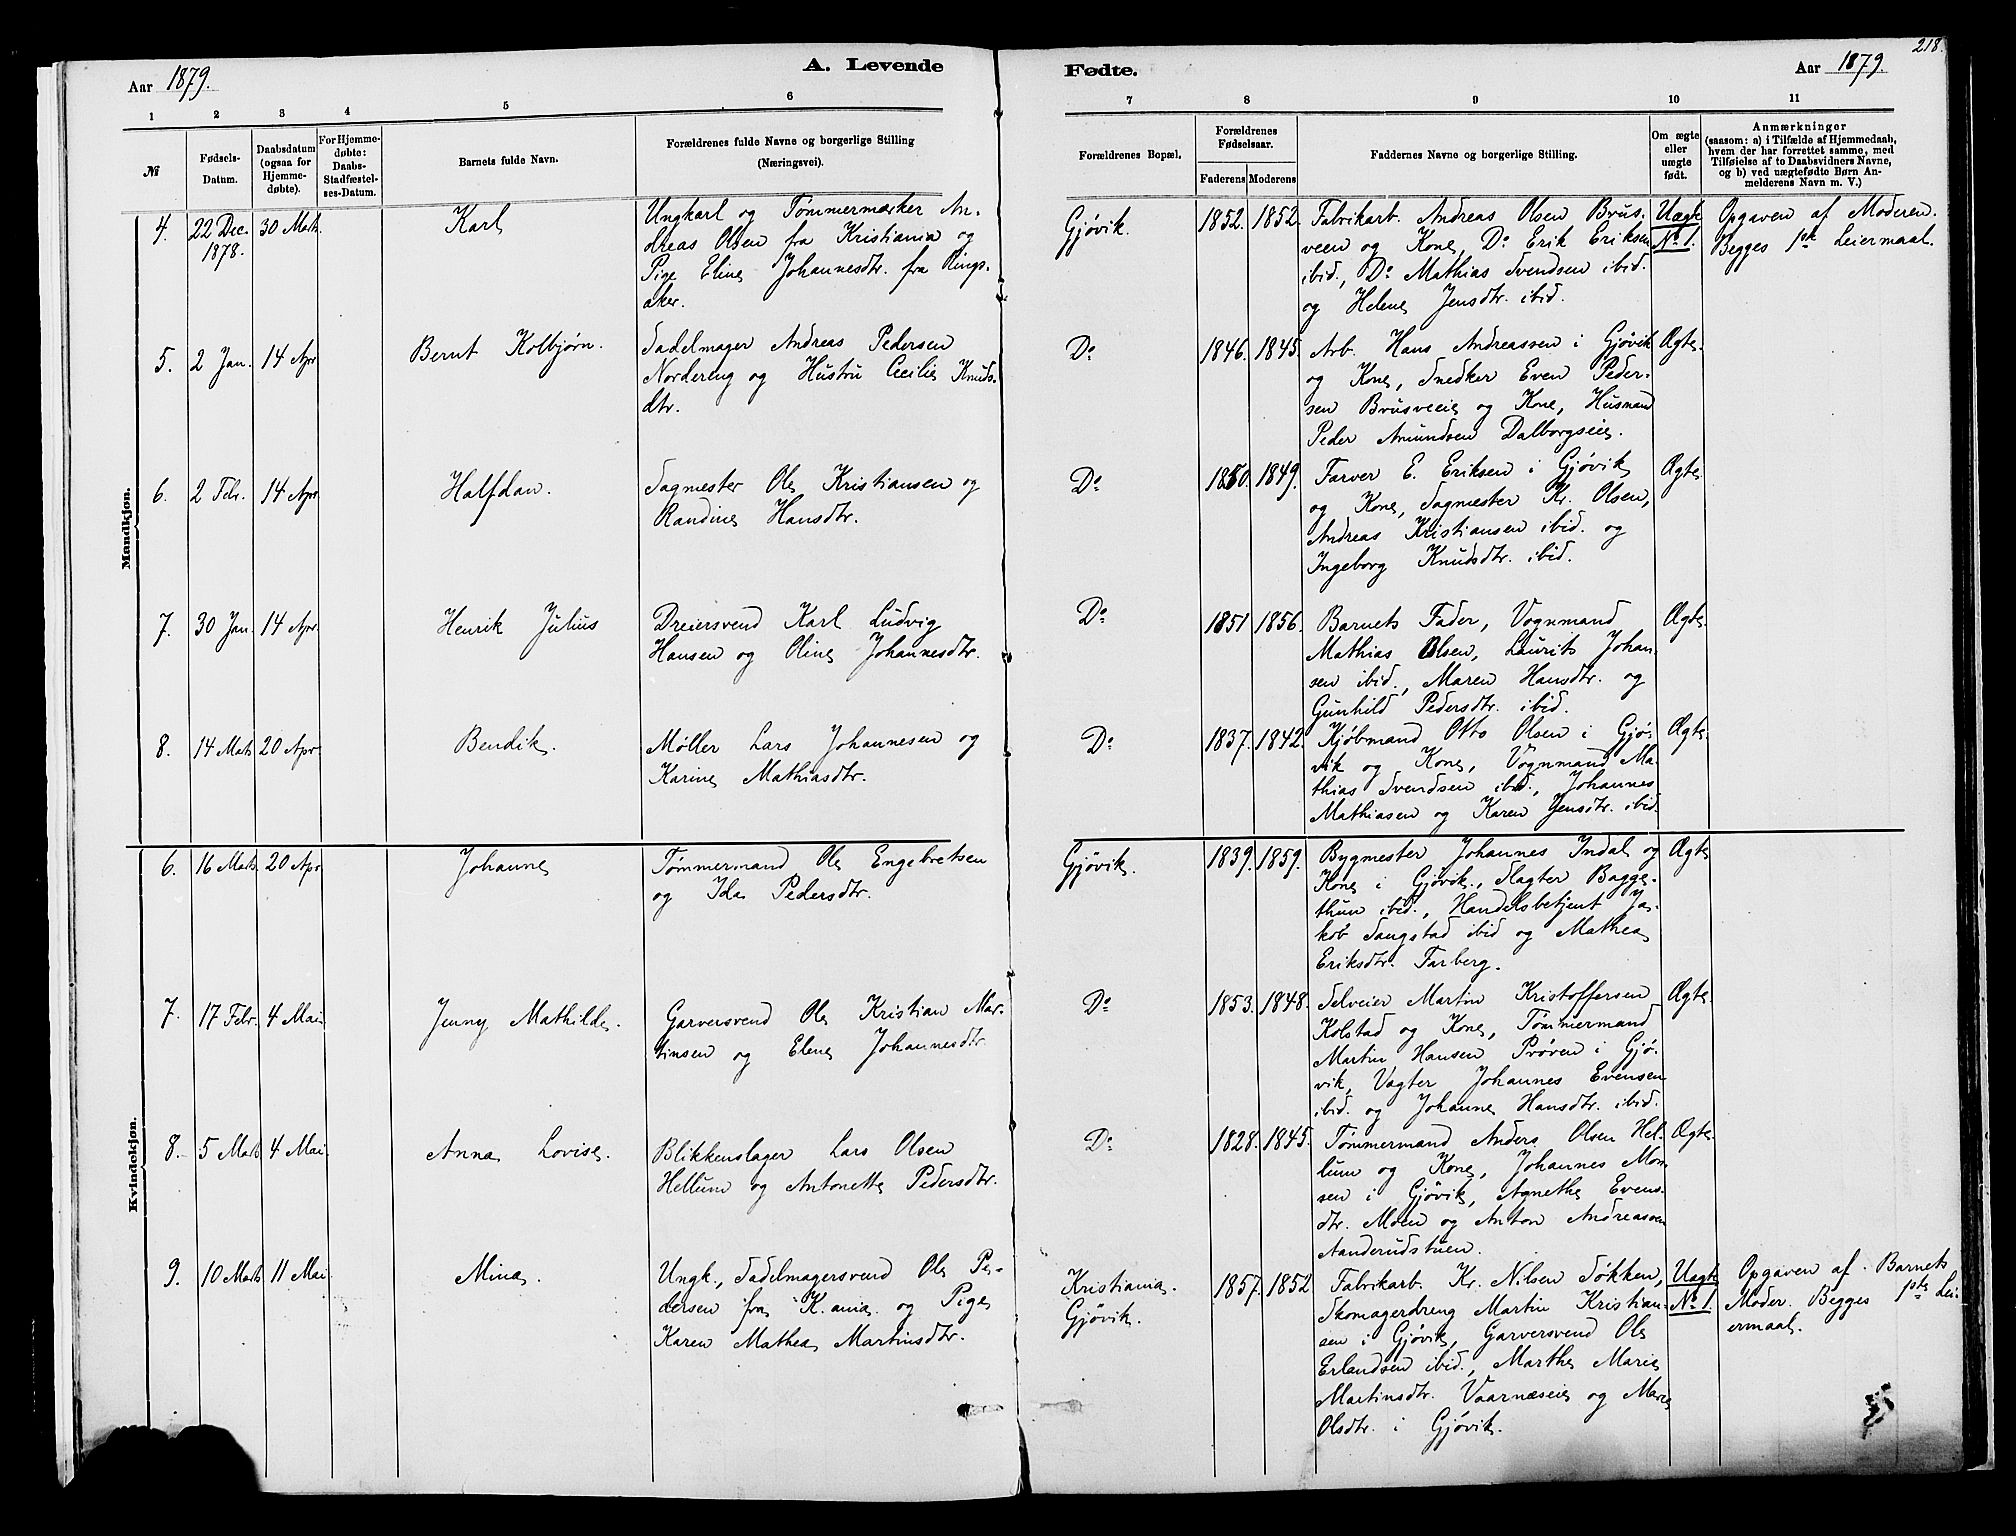 218.
Aar 1879.
A. Levende
Fødte.
Aar 1879.
1 2 3 4 5 6
№
Fødsels-
Datum.
Daabsdatum
(ogsaa for
Hjemme-
døbte).
For Hjemme-
døbte:
Daabs-
Stadfæstel-
ses-Datum.
Barnets fulde Navn.
Forældrenes fulde Navne og borgerlige Stilling
(Næringsvei).
7 8 9 10 11
Forældrenes Bopæl.
Forældrenes
Fødselsaar.
Faderens Moderens
Faddernes Navne og borgerlige Stilling.
Om ægte
eller
uægte
født.
Anmærkninger
(saasom: a) i Tilfælde af Hjemmedaab,
hvem der har forrettet samme, med
Tilføielse af to Daabsvidners Navne,
og b) ved uægtefødte Børn An-
melderens Navn m. V.)
Mandkjøn.
4. 22 Dec. 30 Marts. Karl
1878.
Ungkarl og Tømmermærker An-
dreas Olsen fra Kristiania og
Pige Eline Johannesdtr. fra Rings-
aker.
Gjøvik. 1852. 1852.
Fabrikarb. Andreas Olsen Brus-
veen og Kone, Do Erik Eriksen
ibid., Do Mathias Svendsen ibid.
og Helene Jensdtr. ibid.
Uægte
No 1.
Opgaven af Moderen.
Begges 1ste Leiermaal.
5. 2 Jan. 14 Apr. Bernt Kolbjørn.
Sadelmager Andreas Pedersen
Nordereng og Hustru Cecilie Knuds-
dtr.
Do 1846. 1845.
Arb. Hans Andreassen i Gjøvik
og Kone, Snedker Even Peder-
sen Brusveeie og Kone, Husmand
Peder Amundsen Dalborgseie.
Ægte.
6. 2 Febr. 14 Apr. Halfdan.
Sagmester Ole Kristiansen og
Randine Hansdtr.
Do 1850. 1849.
Farver E. Eriksen i Gjøvik
og Kone, Sagmester Kr. Olsen,
Andreas Kristiansen ibid. og
Ingeborg Knudsdtr. ibid.
Ægte.
7. 30 Jan. 14 Apr. Henrik Julius
Dreiersvend Karl Ludvig
Hansen og Oline Johannesdtr.
Do 1851 1856.
Barnets Fader, Vognmand
Mathias Olsen, Laurits Johan-
sen ibid., Maren Hansdtr. og
Gunhild Pedersdtr. ibid.
Ægte.
8. 14 Marts 20 Apr. Bendik.
Møller Lars Johannesen og
Karine Mathiasdtr.
Do 1837. 1842.
Kjøbmand Otto Olsen i Gjø-
vik og Kone, Vognmand Ma-
thias Svendsen ibid., Johannes
Mathiasen og Karen Jensdtr. ibid.
Ægte.
Kvindekjøn.
6. 16 Marts. 20 Apr. Johanne
Tømmermand Ole Engebretsen
og Ida Pedersdtr.
Gjøvik. 1839. 1859.
Bygmester Johannes Indal og
Kone i Gjøvik, Slagter Bagge-
thun ibid., Handelsbetjent Ja-
kob Sangstad ibid og Mathea
Eriksdtr. Farberg.
Ægte
7. 17 Febr. 4 Mai. Jenny Mathilde.
Garversvend Ole Kristian Mar-
tinsen og Elene Johannesdtr.
Do 1853. 1848.
Selveier Martin Kristoffersen
Kolstad og Kone, Tømmermand
Martin Hansen Prøven i Gjø-
vik, Vagter Johannes Evensen
ibid. og Johanne Hansdtr. ibid.
Ægte.
8. 5 Marts 4 Mai. Anna Lovise.
Blikkenslager Lars Olsen
Hellum og Antonette Pedersdtr.
Do 1828. 1845.
Tømmermand Anders Olsen Hel-
lum og Kone, Johannes Mon-
sen i Gjøvik, Agnethe Evens-
dtr. Moen og Anton Andreassen
Aanderudstuen.
Ægte.
9. 10 Marts 11 Mai. Mina.
Ungk., Sadelmagersvend Ole Pe-
dersen fra K.ania. og Pige
Karen Mathea Martinsdtr.
Kristiania.
Gjøvik.
1857. 1852
Fabrikarb. Kr. Nilsen Søkken,
Skomagerdreng Martin Kristian-
sen i Gjøvik, Garversvend Ole
Erlandsen ibid., Marthe Marie
Martinsdtr. Vaarnæseie og Maria
Olsdtr. i Gjøvik.
Uægte
No 1.
Opgaven af Barnets
Moder. Begges 1ste Lei-
ermaal.